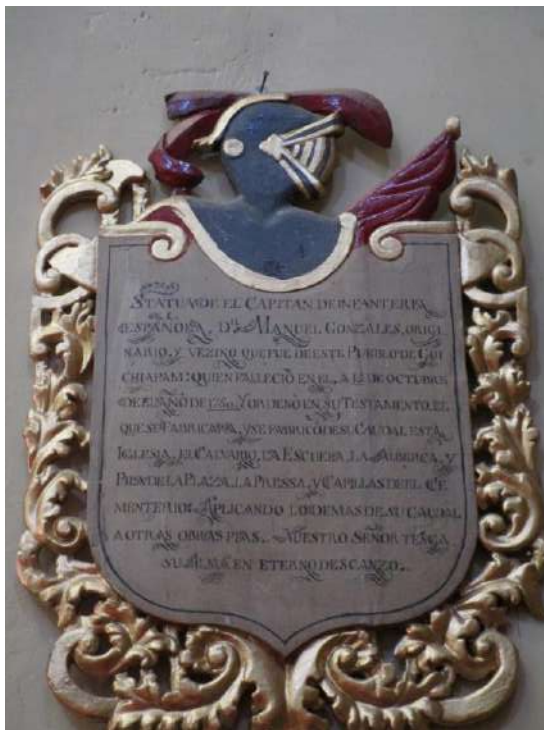 STATUA DE EL CAPITAN DE INFANTERIA
ESPAÑOLA, Dn. MANUEL GONZALES, ORIGI
NARIO, Y VEZINO QUE FUE DE ESTE PUEBLO DE GUI
CHIAPAM: QUIEN FALLECIÓ EN EL, A 12 DE OCTUBRE
DE EL AÑO DE Y ORDENÓ EN SU TESTAMENTO, EL
QUE SE FABRICARA, Y SE FABRICÓ DE SU CAUDAL ESTA
IGLESIA, EL CALVARIO, LA ESCUELA, LA ALBERCA, Y
PILA DE LA PLAZA, LA PRESSA, Y CAPILLAS DE EL CE
MENTERIO: APLICANDO LO DEMAS DE SU CAUDAL
A OTRAS OBRAS PIAS. NUESTRO SEÑOR TENGA
SU ALMA EN ETERNO DESCANZO.